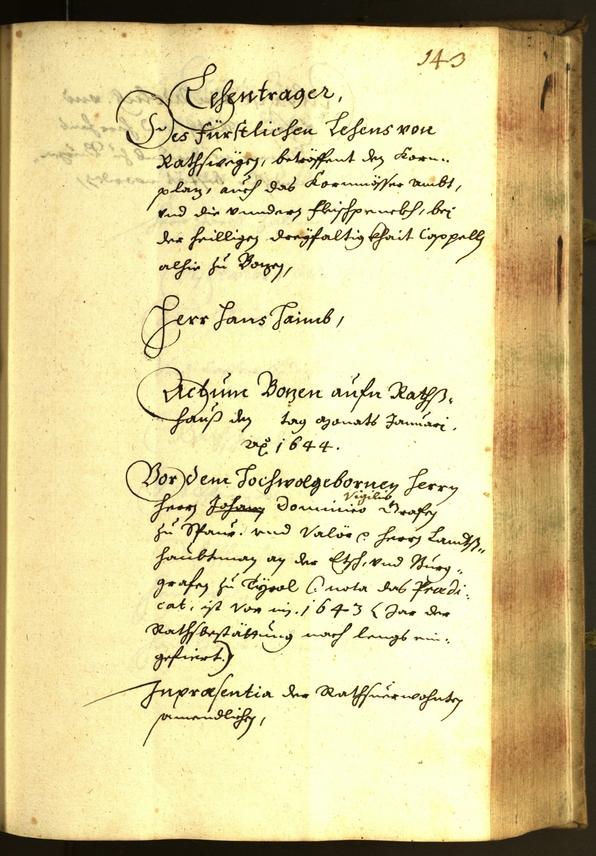 143
Lehentrager,
Des fürstlichen Lehens von
Rathswegen, betreffent den Korn-
plaz, auch das Kornmösser ambt,
vnd die vndern fleischpenckh, bei
der heilligen dreyfaltigkhait Cappelln
alhie zu Bozen,
Herr Hans Haimb,
Actum Bozen aufn Raths-
hauß den tag Monats Januari.
Ao 1644.
Vor dem Hochwolgebornen Herrn
Herrn Johann Dominico Vigilio Grafen
zu Spaur. vnd Valör Herrn Landts-
haubtman an der Etsch, vnd Burg-
grafen zu Tyrol (: nota das Prædi-
cat, ist vor in 1643 Jar der
Rathsbestättung nach lengs ein-
gefiert.)
In præsentia der Rathsuerwohnten
samendlichen,